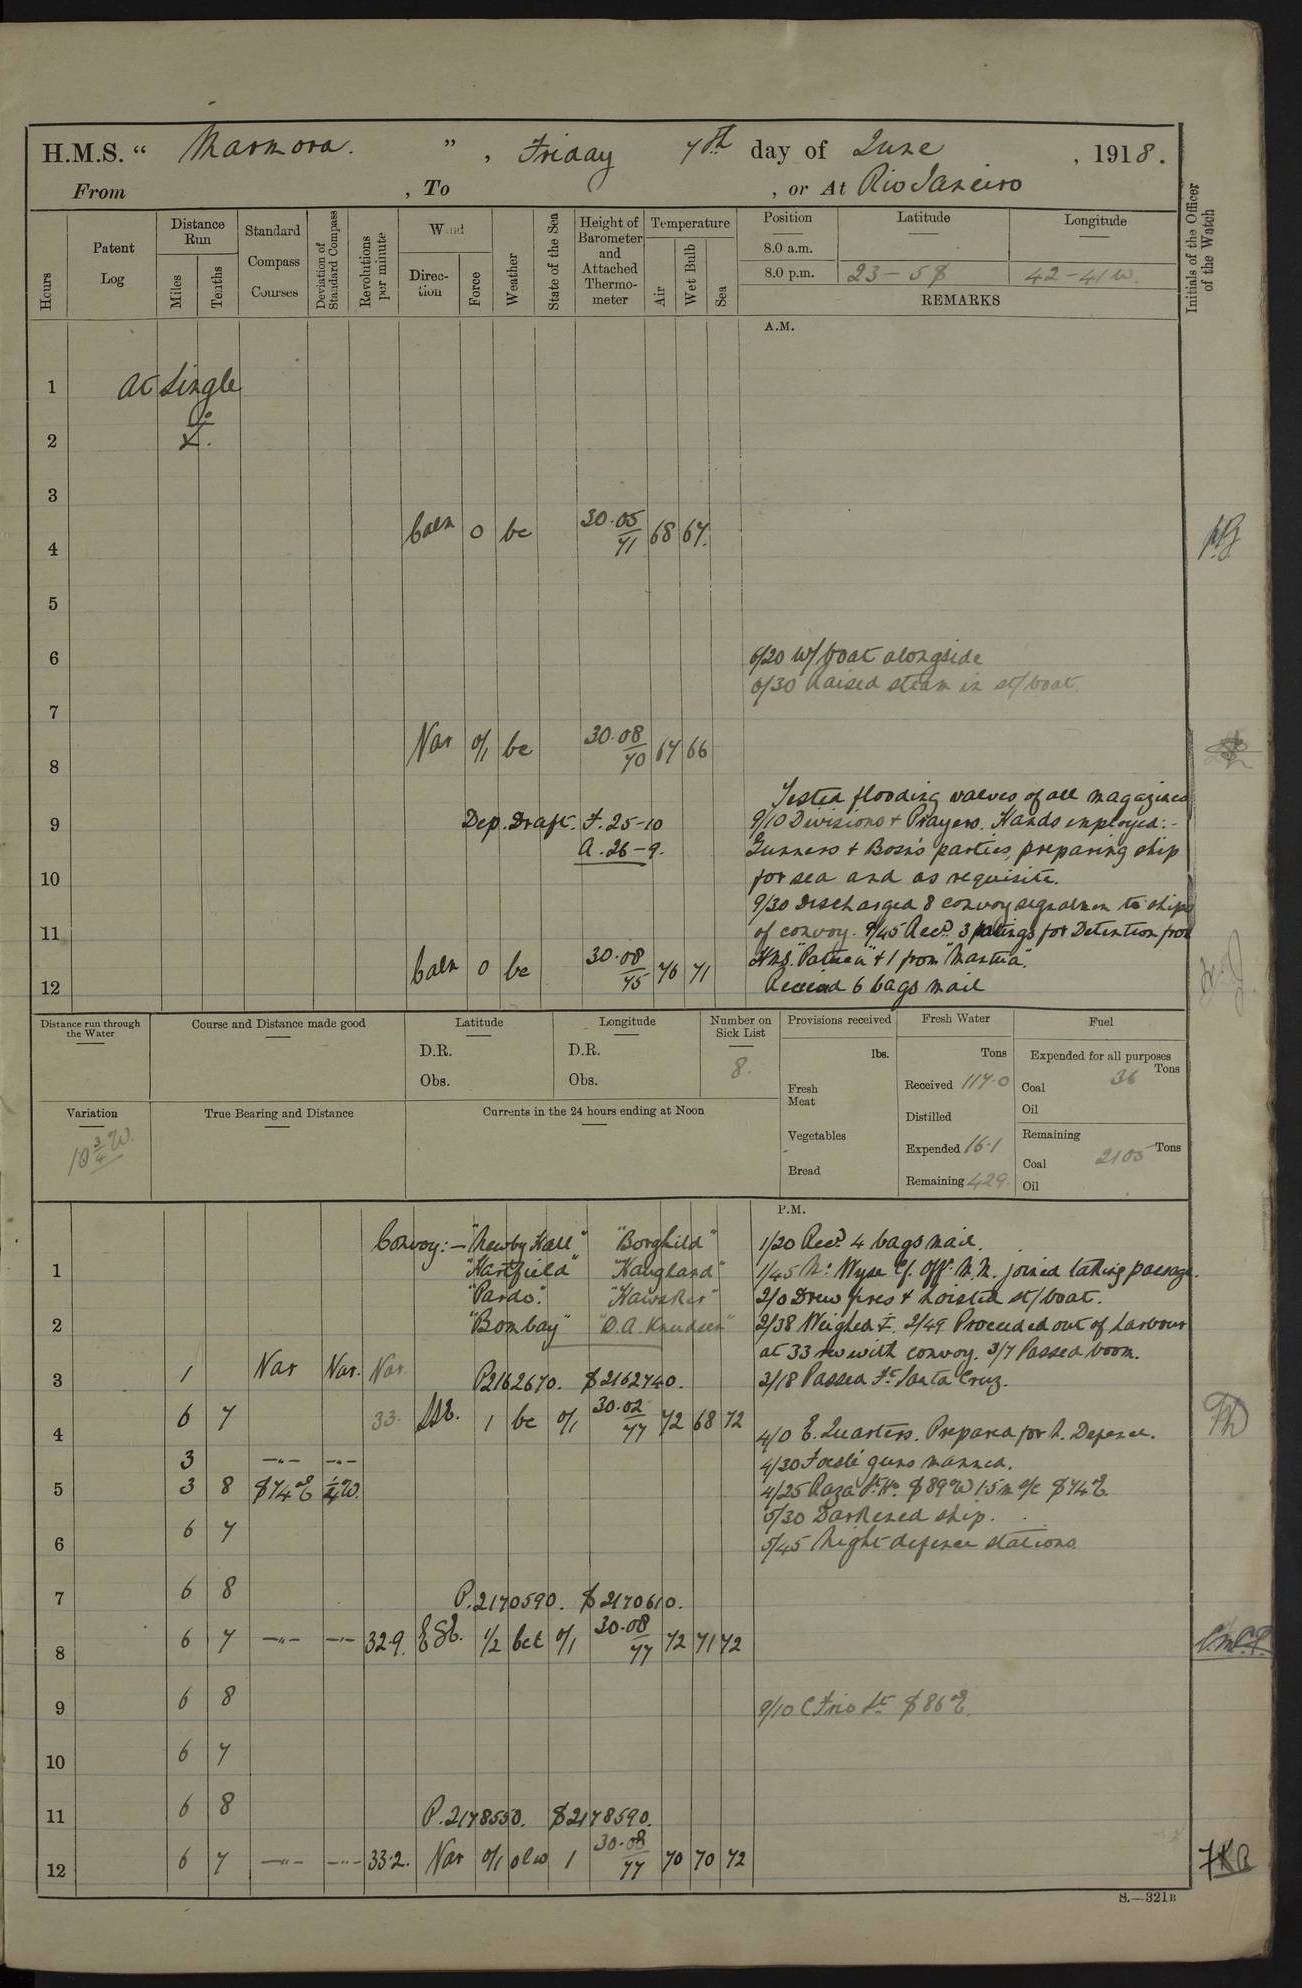 H.M.S. " Marmora. ", Friday 7th day of June, 1918.
From , To , or At Rio Janeiro
Hours
Patent Log
Distance Run
Miles
Tenths
Standard Compass Courses
Deviation of Standard Compass
Revolutions per minute
Wind
Direction
Force
Weather
State of the Sea
Height of Barometer and Attached Thermometer
Temperature
Air
Wet Bulb
Sea
Position
Latitude
Longitude
8.0 a.m.
8.0 p.m. 23-5 S 42-41 W.
REMARKS
Initials of the Officer of the Watch
A.M.
1 At Single
2
3
4 Calm 0 bc 30.05/71 68 67.
5
6 6/20 w/boat alongside
6/30 Raised steam in st/boat
7
8 Var 0/1 bc 30.08/70 67 66
Tested flooding valves of all magazines
9 Dep. Draft. F. 25-10 9/10 Divisions & Prayers. Hands employed:-
A. 26-9. Gunners & Bosn's parties, preparing ship
10 for sea and as requisite.
9/30 Discharged 8 convoy signalmen to ships
11 of convoy. 9/45 Recd. 3 ratings for Detention from
Calm 0 bc 30.08/75 76 71 HMS. "Patuca" & 1 from "Mantua".
12 Received 6 bags mail
Distance run through the Water
Course and Distance made good
Latitude
D.R.
Obs.
Longitude
D.R.
Obs.
Number on Sick List
8.
Provisions received
lbs.
Fresh Meat
Vegetables
Bread
Fresh Water
Tons
Received 117.0
Distilled
Expended 16.1
Remaining 429.
Fuel
Expended for all purposes
Tons
Coal 36
Oil
Remaining
Tons
Coal 2105
Oil
Variation
10 3/4 W.
True Bearing and Distance
Currents in the 24 hours ending at Noon
P.M.
Convoy:- "Newby Hall" "Borghild" 1/20 Recd. 4 bags mail.
1 "Hartfield" "Haugland" 1/45 Mr. Wyse Cf. Offr. M.M. joined taking passage.
"Pardo". 2/0 Drew fires & hoisted st/boat.
2 "Bombay" "O.A. Knudsen" 2/38 Weighed. 2/49 Proceeded out of harbour
at 33 rev with convoy. 3/7 Passed boom.
3 1 Var Var. Var. P2162670. S2162740. 3/18 Passed Ft. Santa Cruz.
4 6 7 33. SSE. 1 bc 0/1 30.02/77 72 68 72 4/0 E. Quarters. Prepared for N. Defence.
3 -"- -"- 4/30 Focsle guns manned.
5 3 8 S74°E 1/4W. 4/25 Raza Lt. Ho. S89°W 1.5 m a/c S74°E
5/30 Darkened ship.
6 6 7 5/45 Night defence stations
7 6 8 P. 2170590. S 2170610.
8 6 7 -"- -"- 32.9. ESE. 1/2 bcl 0/1 30.08/77 72 71 72
9 6 8 9/10 C Frio Lt. S 86°E.
10 6 7
11 6 8 P. 2178550. S 2178590.
12 6 7 -"- -"- 33.2. Var 0/1 olw 1 30.08/77 70 70 72
S.—321B